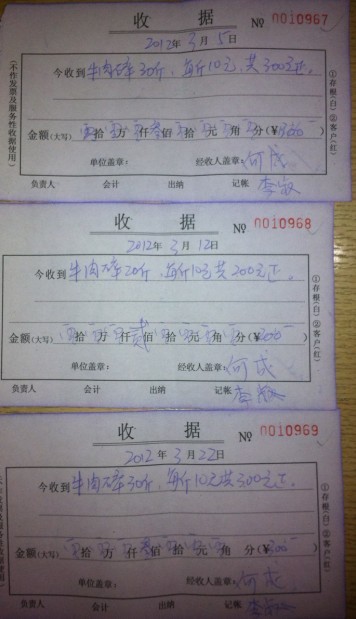 收 据 № 0010967
2012年3月5日
今收到牛肉碎30斤，每斤10元，共300元正。
金额(大写) 拾 万 仟叁佰 拾 元 角 分(¥300)
单位盖章： 经收人盖章：何成
负责人 会计 出纳 记帐
(不作发票及服务性收据使用)
①存根(白) ②客户(红)
收 据 № 0010968
2012年3月12日
今收到牛肉碎20斤，每斤10元共200元正。
金额(大写) 拾 万 仟贰佰 拾 元 角 分(¥200)
单位盖章： 经收人盖章：何成
负责人 会计 出纳 记帐
①存根(白) ②客户(红)
收 据 № 0010969
2012年3月22日
今收到牛肉碎30斤，每斤10元共300元正。
金额(大写) 拾 万 仟叁佰 拾 元 角 分(¥300)
单位盖章： 经收人盖章：何成
负责人 会计 出纳 记帐
①存根(白) ②客户(红)